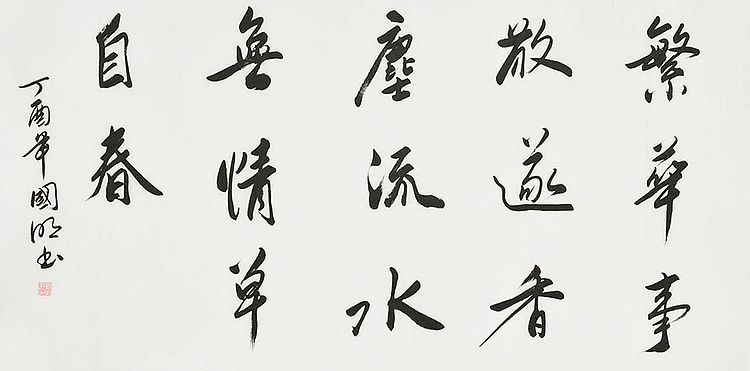 繁華事
散遂香
塵流水
無情草
自春
丁酉年國明書